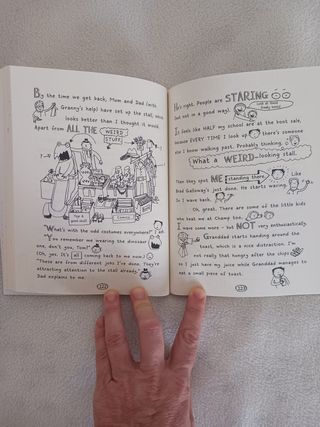 By the time we get back, Mum and Dad (with
Granny's help) have set up the stall, which
looks better than I thought it would.
Apart from ALL THE WEIRD
STUFF.
"What's with the odd costumes everywhere?" I ask
"You remember me wearing the dinosaur
one, don't you, Tom?"
(Oh, yes. It's all coming back to me now.)
"These are from different jobs I've done. They're
attracting attention to the stall already,"
Dad explains to me.
222
He's right. People are STARING
but not in a good way!
It feels like HALF my school are at the boot sale,
because EVERY TIME I look up there's someone
else I know walking past. Probably thinking,
What a WEIRD-looking stall.
Then they spot ME standing there. Like
Brad Galloway's just done. He starts waving.
So I wave back.
Oh, great. There are some of the little kids
who beat me at Champ too.
I wave some more - but NOT very enthusiastically.
Granddad starts handing around the
toast, which is a nice distraction. I'm
not really that hungry after the chips
so I just have my juice while Granddad manages to
eat a small piece of toast.
223